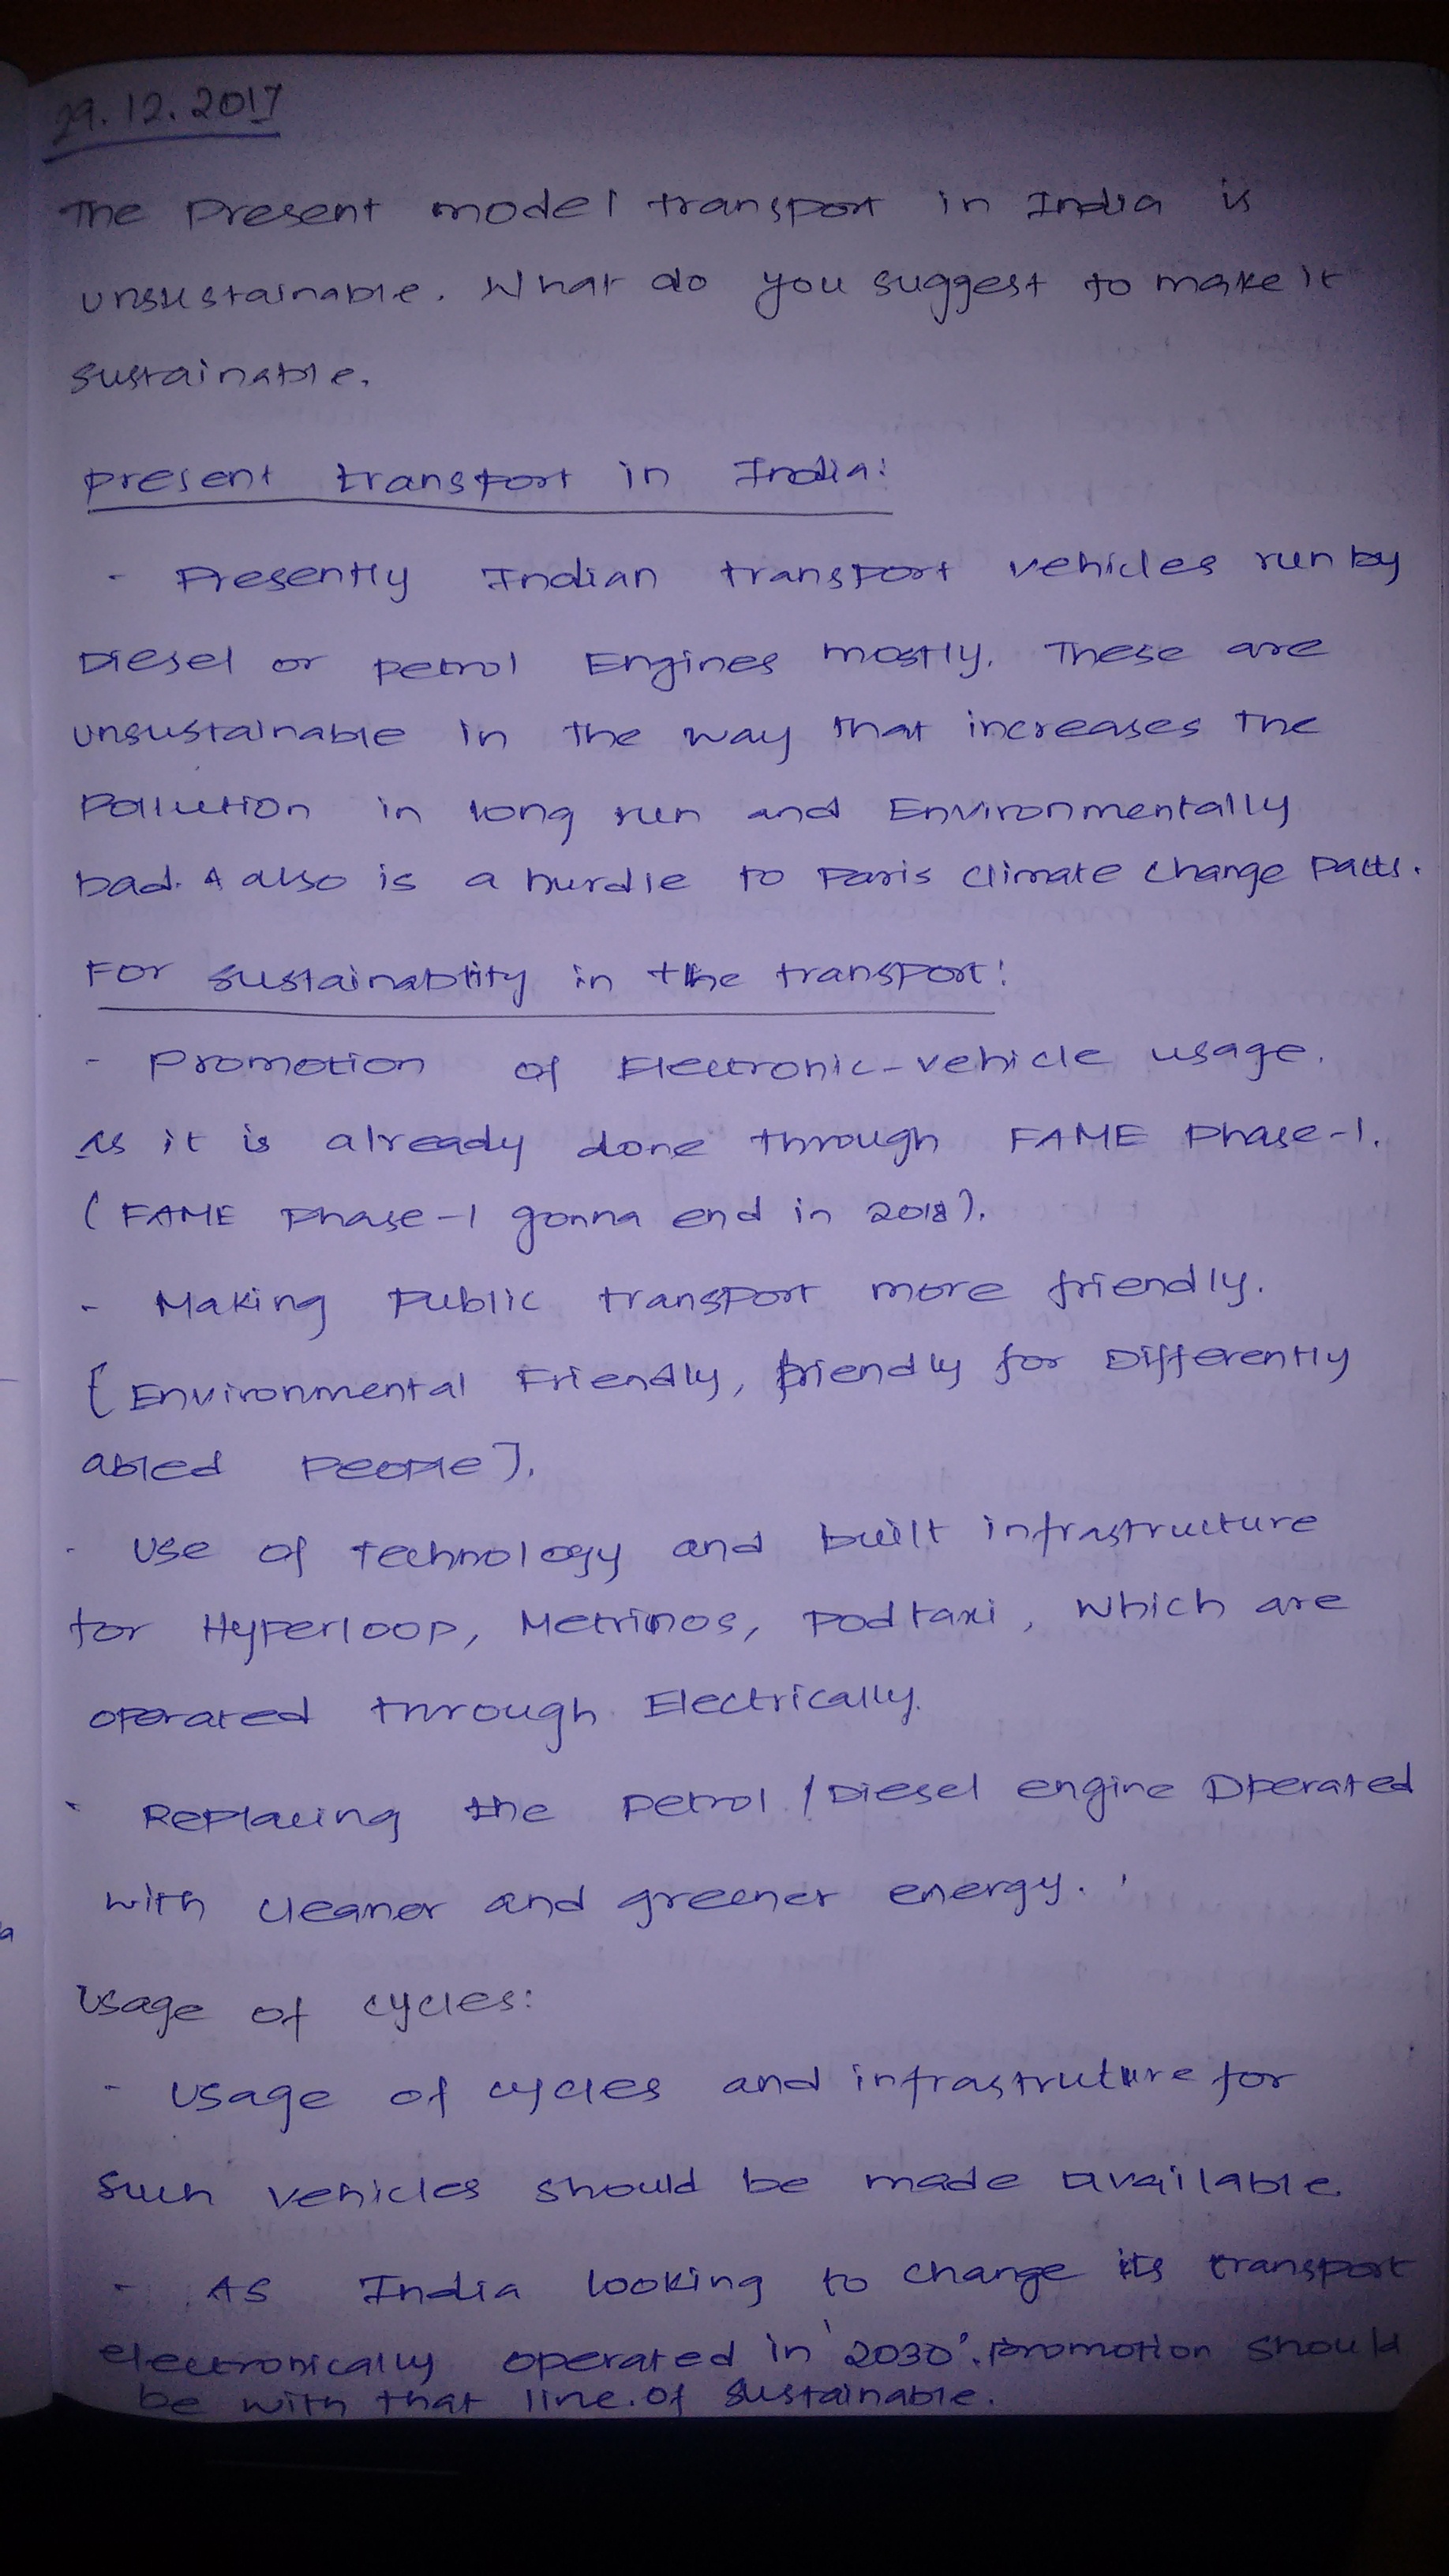 29.12.2017
The Present model transport in India is
unsustainable. What do you suggest to make it
sustainable.
present transport in India:
- Presently Indian transport vehicles run by
Diesel or petrol Engines mostly. These are
unsustainable in the way that increases the
Pollution in long run and Environmentally
bad. & also is a hurdle to Paris Climate Change Pacts.
For sustainablity in the transport:
- Promotion of Electronic-vehicle usage.
As it is already done through FAME Phase-1.
(FAME Phase-1 gonna end in 2018).
- Making Public transport more friendly.
[Environmental Friendly, friendly for Differently
abled People].
- Use of Technology and built infrastructure
for Hyperloop, Metrinos, Pod taxi, which are
operated through Electrically.
- Replacing the petrol / Diesel engine Operated
with cleaner and greener energy.
Usage of cycles:
- Usage of cycles and infrastruture for
such vehicles should be made available.
- As India looking to change its transport
electronically operated in '2030'. promotion should
be with that line. of sustainable.